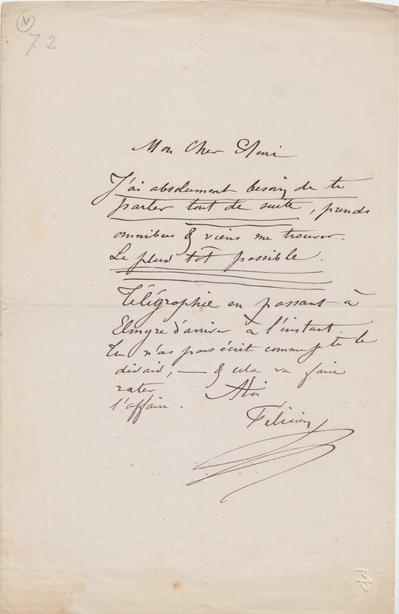 10
72
Mon Cher
J'ai absolument besoin de te
parler tout de suite, prends
omnibus & viens me trouver.
Le plus tôt possible.
Télégraphie en passant à
Elmyre d'arriver à l'instant.
Tu n'as pas écrit comme je te le
disais, — & cela va faire
rater
l'affaire. 
Félicien